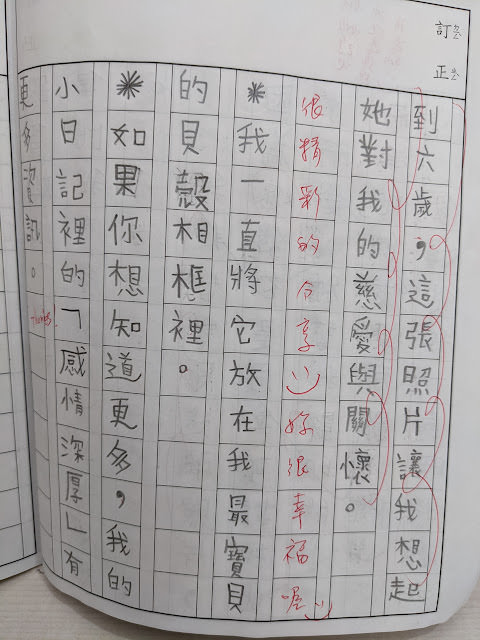 訂正
到六歲，這張照片讓我想起
她對我的慈愛與關懷。
很精彩的分享 妳很幸福喔
*我一直將它放在我最寶貝
的貝殼相框裡。
*如果你想知道更多，我的
小日記裡的「感情深厚」有
更多資訊。